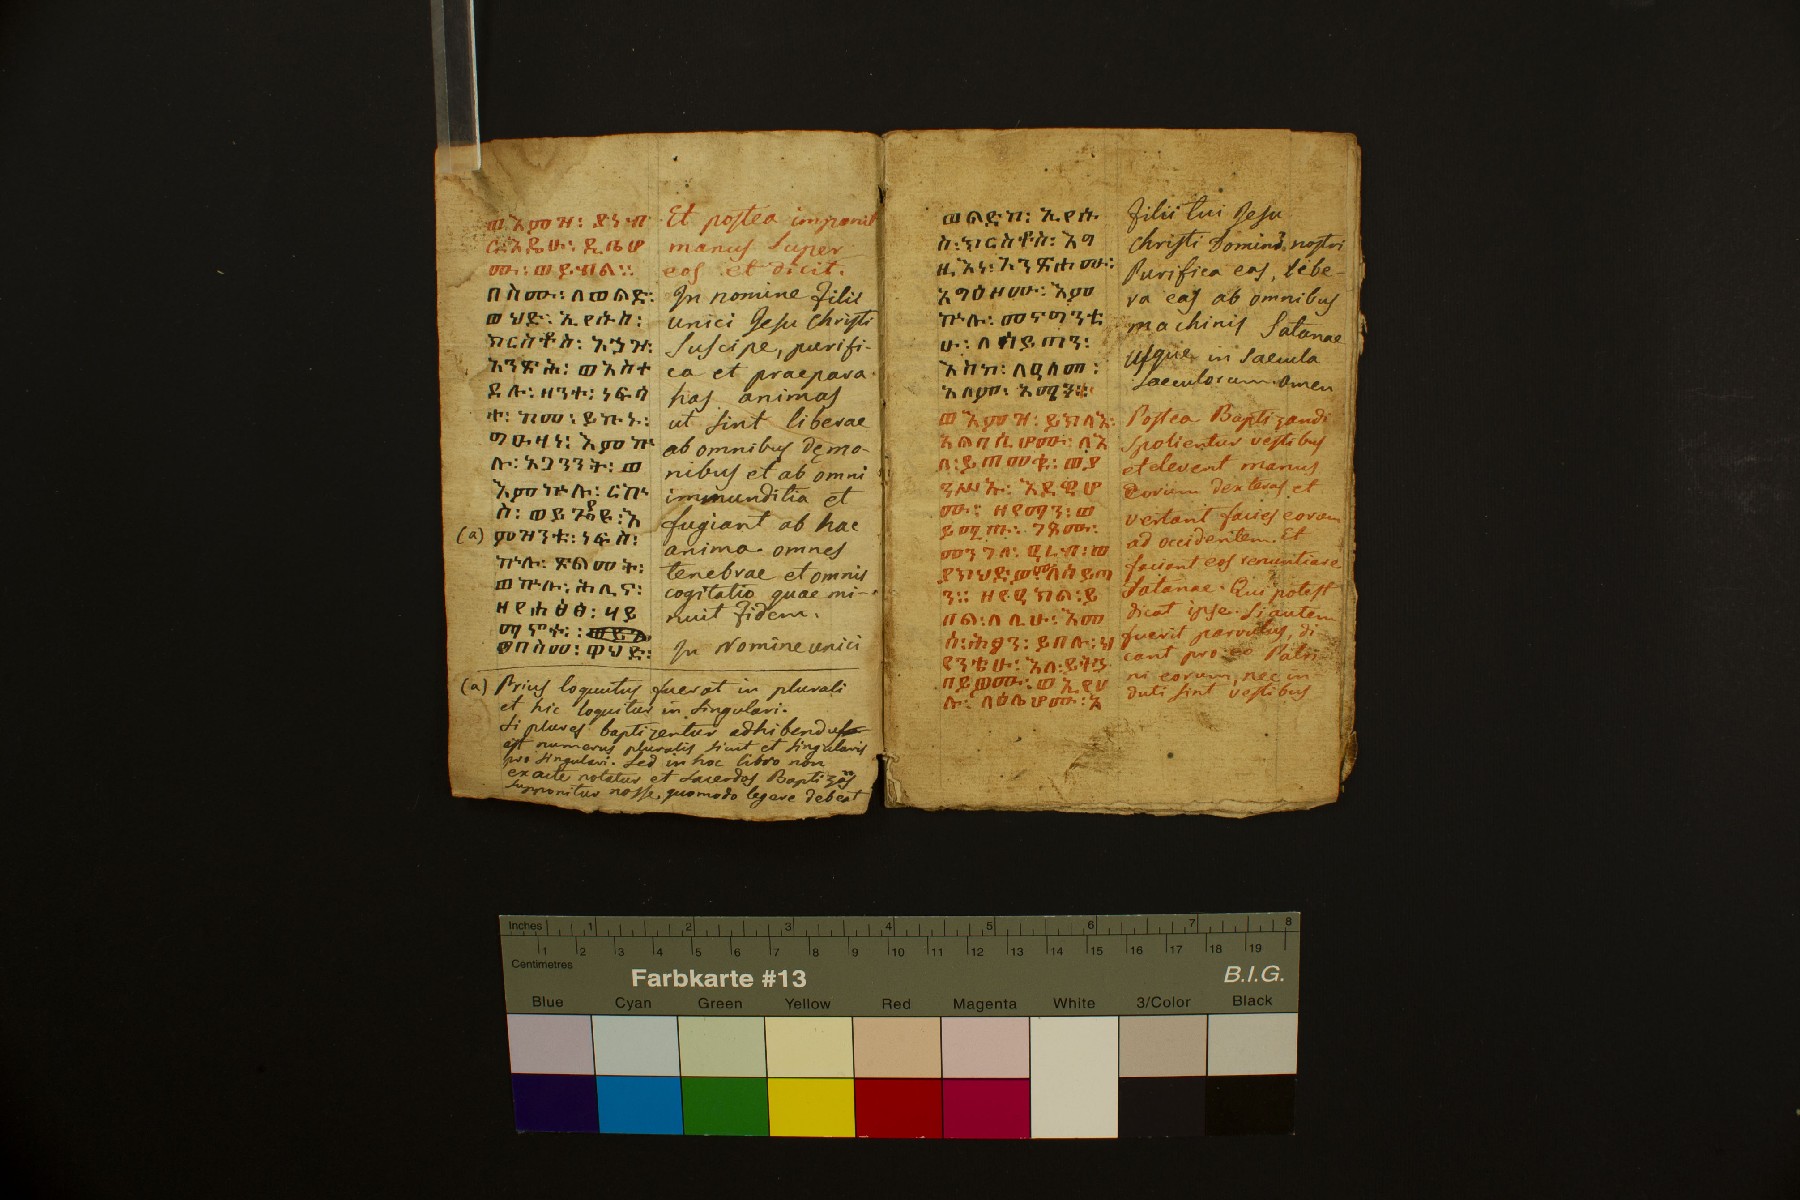 ወእምዝ፡ ያነብ
ር፡እዴሁ፡ ዲቤሆ
ሙ፡ ወይብል።
በስሙ፡ ለወልድ፡
ወህድ፡ ኢየሱስ፡
ክርስቶስ፡ አኃዝ፡
አንጽሕ፡ ወአስተ
ደሉ፡ ዘንተ፡ ነፍሳ
ተ፡ ከመ፡ ይኩኑ፡
ግዑዛነ፡ እምኵ
ሉ፡ አጋንንት፡ ወ
እምኵሉ፡ ርኩ
ስ፡ ወይጕየዩ፡እ
(a) ምዝንቱ፡ ነፍስ፡
ኵሉ፡ ጽልመት፡
ወኵሉ፡ ሕሊና፡
ዘየሐፅፅ፡ ሃይ
ማኖተ፡፡
በስመ፡ ዋህድ፡
Et postea imponit
manus super
eos et dicit.
In nomine Filii
unici Jesu Christi
Suscipe, purifi-
ca et praepara
has animas
ut sint liberae
ab omnibus dęmo-
nibus et ab omni
immunditia et
fugiant ab hac
anima omnes
tenebrae et omnis
cogitatio quae mi-
nuit Fidem.
In Nomine unici
(a) Prius loquutus fuerat in plurali
et hic loquitur in singulari.
Si plures baptizentur adhibendus
est numerus pluralis sicut et singularis
pro singulari. Sed in hoc libro non
exacte notatur et Sacerdos Baptizans
supponitur nosse, quomodo legere debeat
ወልድከ፡ ኢየሱ
ስ፡ክርስቶስ፡ እግ
ዚእነ፡አንጽሖሙ፡
አግዕዞሙ፡ እም
ኵሉ፡ መናግንቲ
ሁ፡ ለሰይጣን፡
እስከ፡ ለዓለመ፡
አለም፡ አሜን።
ወእምዝ፡ ይክላእ፡
አልባሲሆሙ፡ ለእ
ለ፡ይጠመቁ፡ ወያ
ንሥኡ፡ እደዊሆ
ሙ፡ ዘየማን፡ ወ
ይሚጡ፡ ገጾሙ፡
መንገለ፡ ዓረብ፡ወ
ያክህድዎሙ፡ለሰይጣ
ን፡፡ ዘይክል፡ይ
በል፡ለሊሁ፡ እመ
ሰ፡ሕፃን፡ ይበሉ፡ህ
የንቴሁ፡ እለ፡ይትኀ
Filii tui Jesu
Christi Domini nostri
Purifica eas, libe-
ra eas ab omnibus
machinis Satanae
usque in saecula
saeculorum Amen
Postea Baptizandi
spolientur vestibus
et elevent manus
eorum dexteras et
vertant facies eorum
ad occidentem. Et
faciant eos renuntiare
Satanae. Qui potest
dicat ipse. Si autem
fuerit parvulus, di
cant pro eo Patri
ni eorum, nec in-
duti sint vestibus
Inches 1 2 3 4 5 6 7 8
1 2 3 4 5 6 7 8 9 10 11 12 13 14 15 16 17 18 19
Centimetres
Farbkarte #13
B.I.G.
Blue Cyan Green Yellow Red Magenta White 3/Color Black